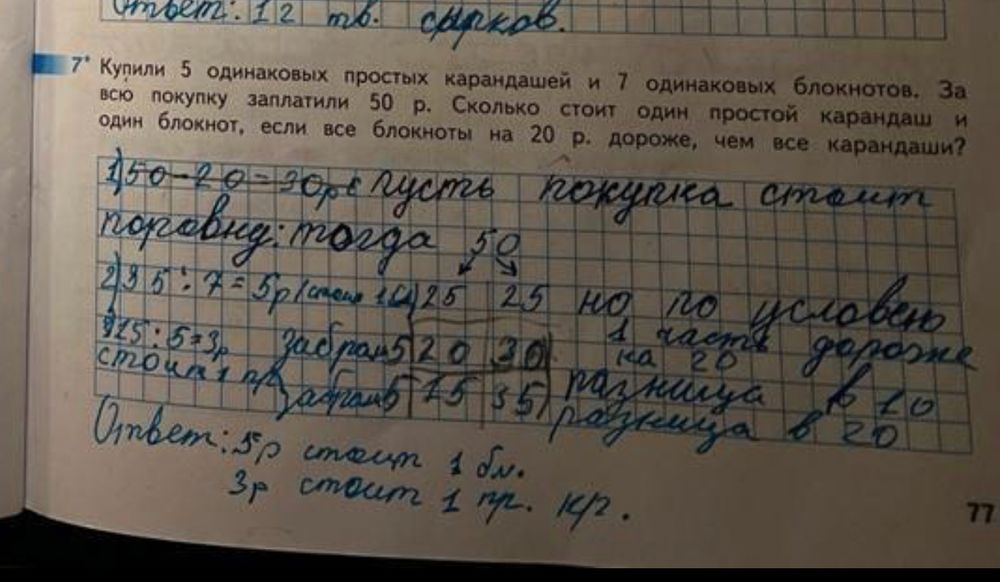 Ответ: 12 тв. сырков.
7* Купили 5 одинаковых простых карандашей и 7 одинаковых блокнотов. За
всю покупку заплатили 50 р. Сколько стоит один простой карандаш и
один блокнот, если все блокноты на 20 р. дороже, чем все карандаши?
1) 50-20=30р с пусть покупка стоит
поровну: тогда 50
2) 35:7=5р (стоит 1 25 25 но по условею
1 часть дороже
3) 15:5=3р забрали 5 20 30 на 20
стоит 1 пр забрали 5 15 35 разница в 10
разница в 20
Ответ: 5р стоит 1 бл.
3р стоит 1 пр. кр.
77